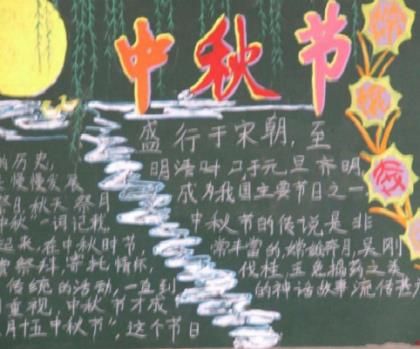 中秋节
的历史,
慢慢发展
祭月,秋天祭月
中秋"一词记载,
起来,在中秋时节,
祭拜,寄托情怀,
传统的活动,一直到
重视,中秋节才成
月十五中秋节",这个节日
盛行于宋朝,至
明清时,与元旦齐明,
成为我国主要节日之一
中秋节的传说是非
常丰富的,嫦娥奔月,吴刚
伐桂,玉兔捣药之类
的神话故事流传甚